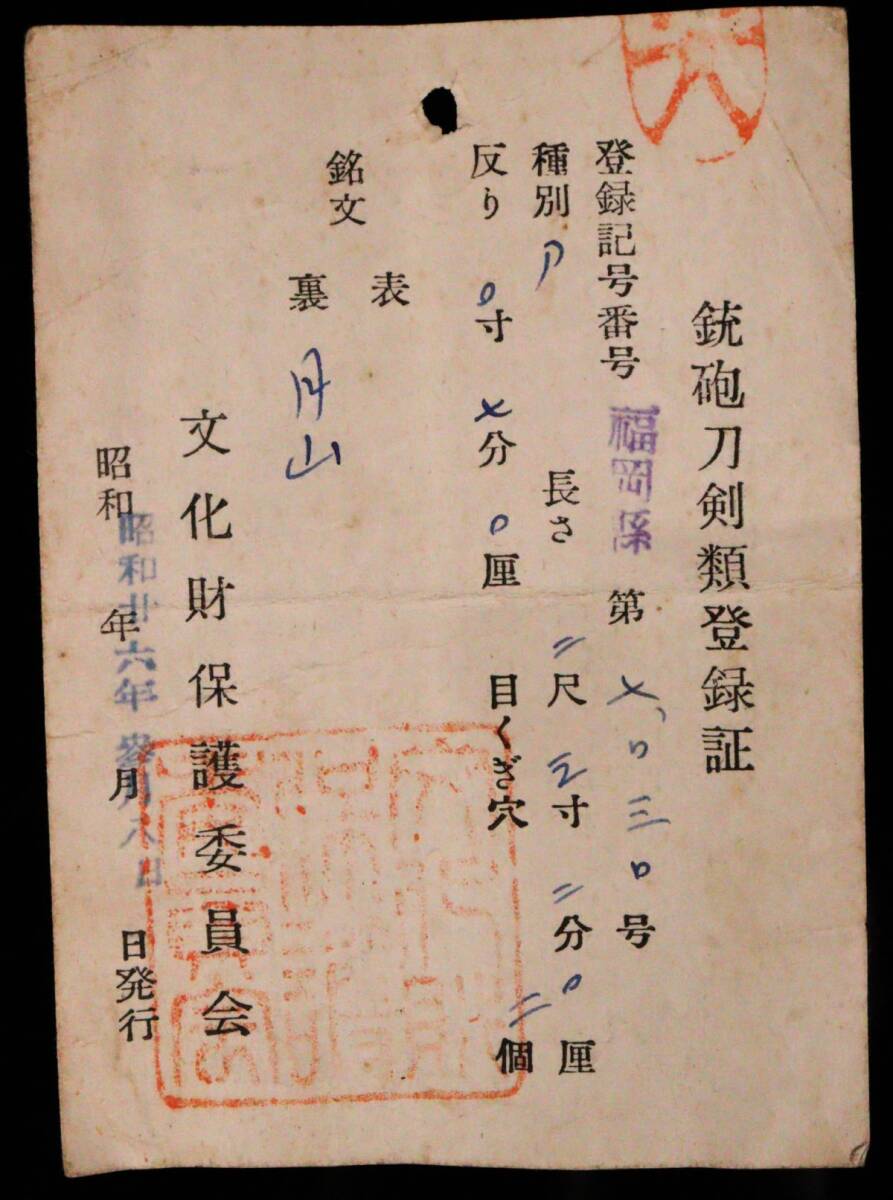 銃砲刀剣類登録証
登録記号番号 福岡縣 第七、〇三〇号
種別 刀 長さ 二尺 寸 二分〇厘
反り 〇寸 七分 〇厘 目くぎ穴 二個
銘文
表
裏 月山
文化財保護委員会
昭和 年 月 日発行
昭和廿六年参月八日